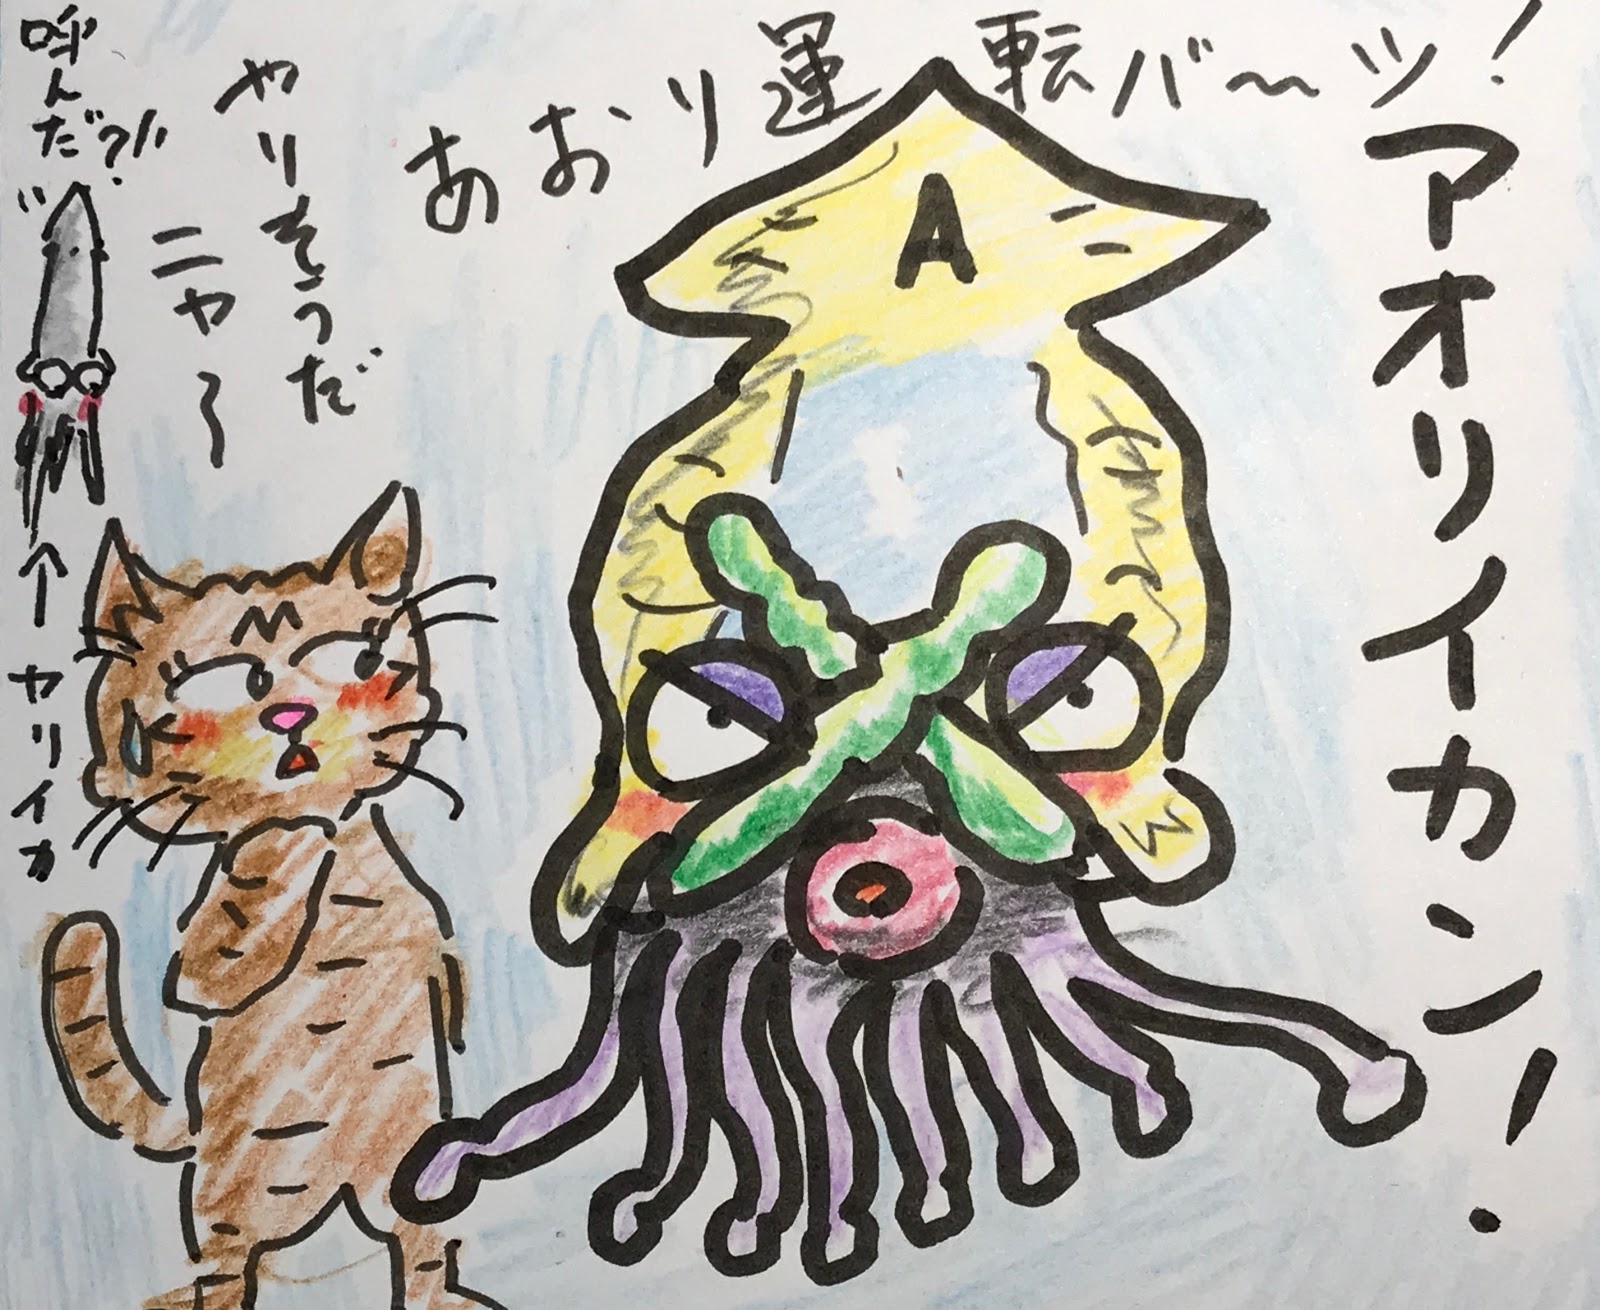 アオリイカン!
あおり運転バ〜ッ!
A
やりそうだ
ニャ〜
呼んだ?!!
↑ヤリイカ